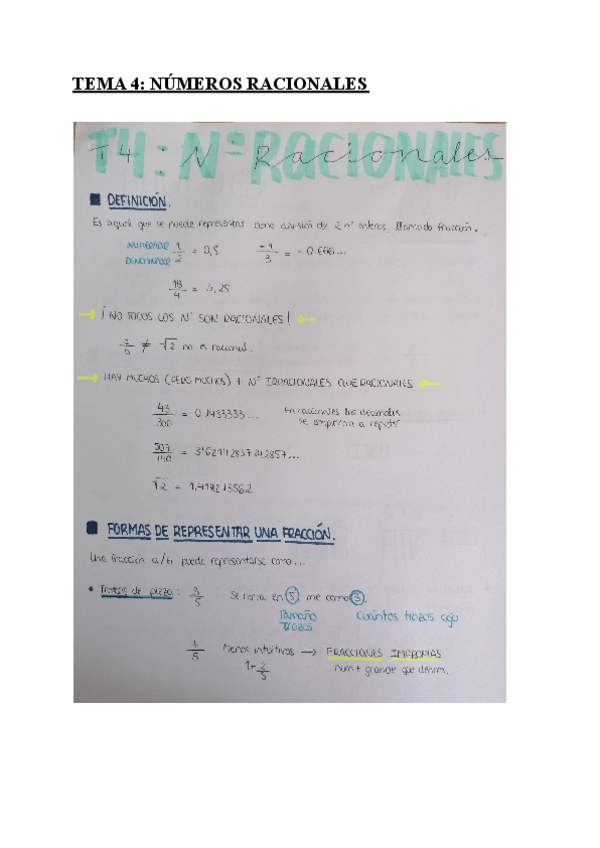 TEMA 4: NÚMEROS RACIONALES
T4: Nº RACIONALES
DEFINICIÓN.
Es aquel que se puede representar como división de 2 nº enteros, llamado fracción.
NUMERADOR 1/2 = 0,5
DENOMINADOR
/3 = - 0.666...
18/4 =
¡NO TODOS LOS Nº SON RACIONALES!
≠ √2 no es racional.
HAY MUCHOS (PERO MUCHOS) + Nº IRRACIONALES QUE RACIONALES
43/300 = 0.1433333... En racionales los decimales
se empiezan a repetir
= 3'62142857142857...
√2 =
FORMAS DE REPRESENTAR UNA FRACCIÓN.
Una fracción a/b puede representarse como...
Trozos de pizza: 3/5 Se corta en 5, me como 3.
Tamaño Cuántos trozos cojo
Trozos
Menos intuitivos → FRACCIONES IMPROPIAS
1+2/5 num + grande que denom.